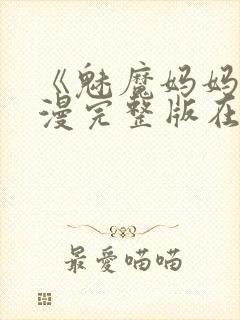 《魅魔妈妈
漫完整版在
最愛喵喵